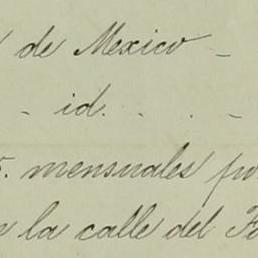 de Mexico -
- id. . . . -
mensuales
la calle del